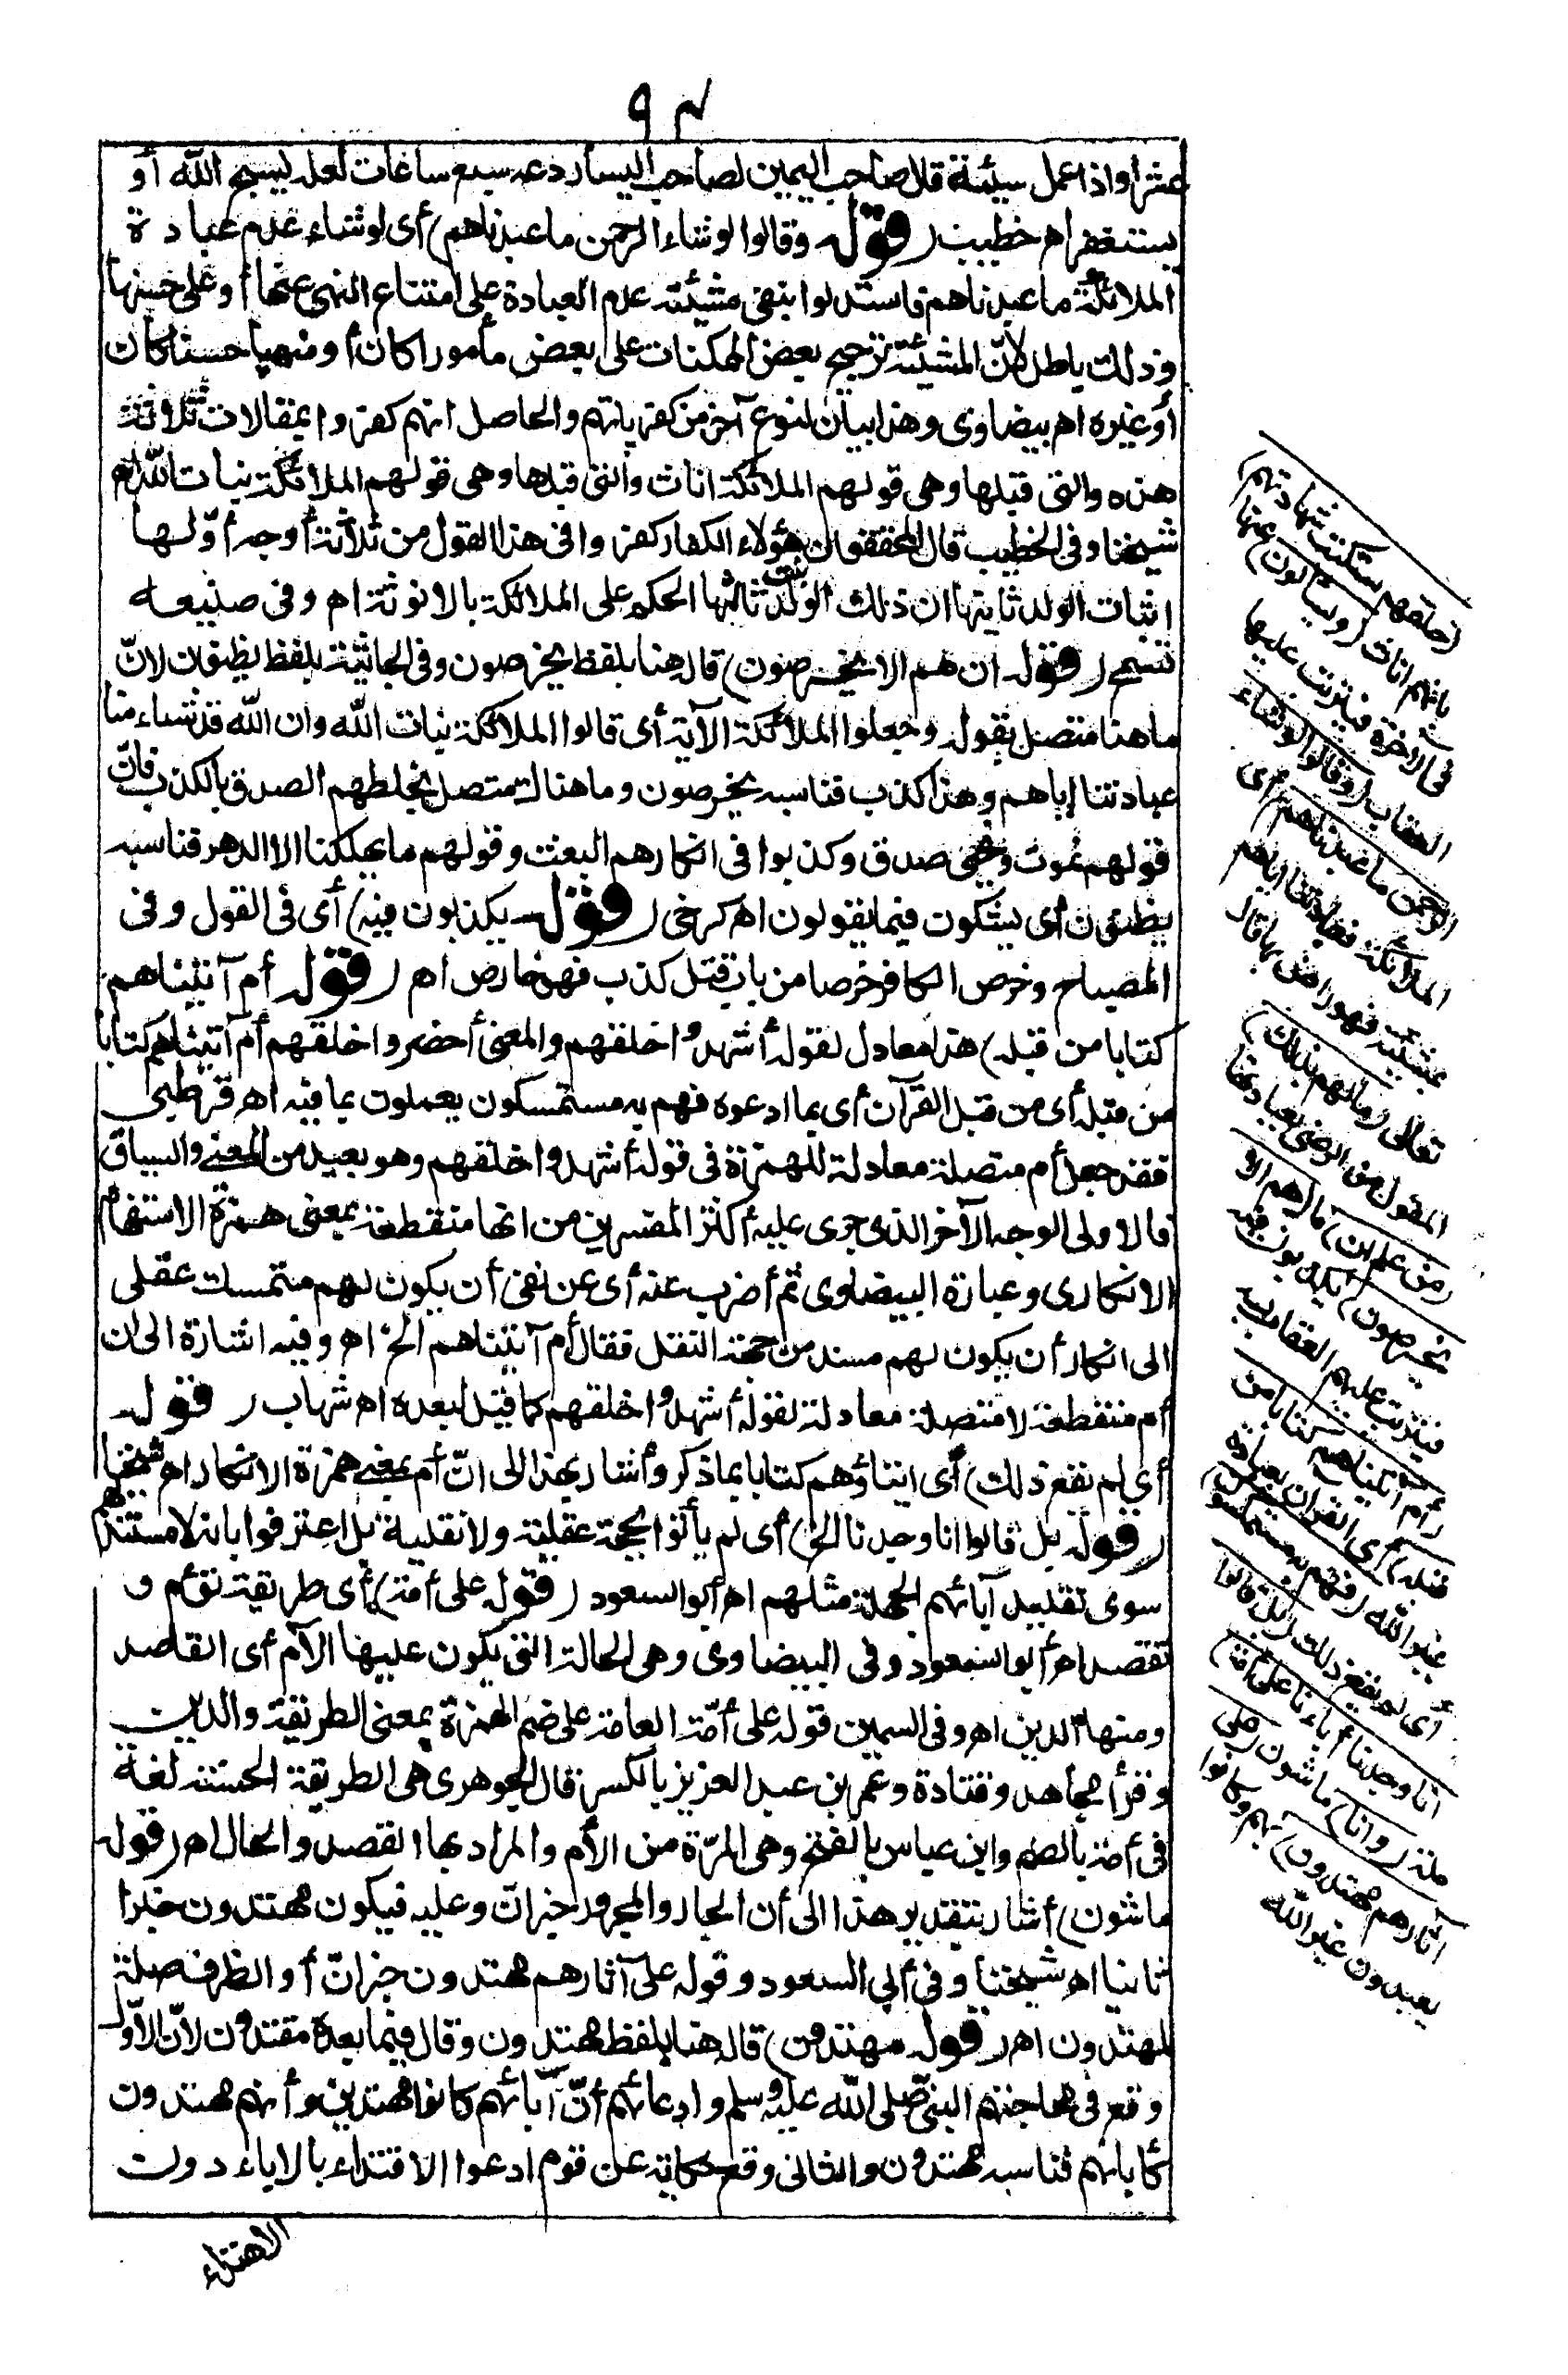 ٩٣
عشرا واذا عمل سيئة قال صاحب اليمين لصاحب اليسار دعه سبع ساعات لعله يسبح الله أو
يستغفر اه خطيب (قوله وقالوا لو شاء الرحمن ما عبدناهم) أى لو شاء عدم عبادة
الملائكة ما عبدناهم فاستدلوا بنفى مشيئته عدم العبادة على امتناع النهى عنها أو على حسنها
وذلك باطل لأنّ المشيئة ترجيح بعض الممكنات على بعض مأمورا كان أو منهيا حسنا كان
أو غيره اه بيضاوى وهذا بيان لنوع آخر من كفرياتهم والحاصل انهم كفروا بمقالات ثلاثة
هذه والتى قبلها وهى قولهم الملائكة اناث والتى قبلها وهى قولهم الملائكة بنات الله اه
شيخنا وفى الخطيب قال المحققون هؤلاء الكفار كفروا فى هذا القول من ثلاثة أوجه أوّلها
اثبات الولد ثانيها ان ذلك الولد بنت ثالثها الحكم على الملائكة بالانوثة اه وفى صنيعه
تسمح (قوله ان هم الا يخرصون) قاله هنا بلفظ يخرصون وفى الجاثية بلفظ يظنون لانّ
ما هنا متصل بقوله وجعلوا الملائكة الآية أى قالوا الملائكة بنات الله وان الله قد شاء منا
عبادتنا إياهم وهذا كذب فناسبه يخرصون وما هناك متصل بخلطهم الصدق بالكذب فانّ
قولهم نموت ونحيى صدق وكذبوا فى انكارهم البعث وقولهم ما يهلكنا الا الدهر فناسبه
يظنون أى يشكون فيما يقولون اه كرخى (قوله يكذبون فيه) أى فى القول وفى
المصباح وخرص الكافر خرصا من باب قتل كذب فهو خارص اه (قوله أم آتيناهم
كتابا من قبله) هذا معادل لقوله أشهدوا خلقهم والمعنى أحضروا خلقهم أم آتيناهم كتابا
من قبله أى من قبل القرآن أى بما ادعوه فهم به مستمسكون يعملون بما فيه اه قرطبى
فقد جعل أم متصلة معادلة للهمزة فى قوله أشهدوا خلقهم وهو بعيد من المعنى والسياق
فالاولى الوجه الآخر الذى جرى عليه أكثر المفسرين من انها منقطعة بمعنى همزة الاستفهام
الانكارى وعبارة البيضاوى ثم أضرب عنه أى عن نفى أن يكون لهم متمسك عقلى
الى انكار أن يكون لهم مسند من جهة النقل فقال أم آتيناهم الخ اه وفيه اشارة الى ان
أم منقطعة لا متصلة معادلة لقوله أشهدوا خلقهم كما قيل لبعده اه شهاب (قوله
أى لم نفع ذلك) أى ايتاؤهم كتابا بما ذكر وأشار بهذا الى انّ أم بمعنى همزة الانكار اه شيخنا
(قوله بل قالوا انا وجدنا الخ) أى لم يأتوا بحجة عقلية ولا نقلية بل اعترفوا بانه لا مستند لهم
سوى تقليد آبائهم الجهلة مثلهم اه أبو السعود (قوله على أمة) أى طريقة تؤم و
تقصد اه أبو السعود وفى البيضاوى وهى الحالة التى يكون عليها الآم أى القاصد
ومنها الدين اه وفى السمين قوله على أمّة العامة على ضم الهمزة بمعنى الطريقة والدين
وقرأ مجاهد وقتادة وعمر بن عبد العزيز بالكسر قال الجوهرى هى الطريقة الحسنة لغة
فى أمة بالضم وابن عباس بالفتح وهى المرّة من الأم والمراد بها القصد والحال اه (قوله
ماشون) أشار بتقدير هذا الى أن الجار والمجرور خبر انّ وعليه فيكون مهتدون خبرا
ثانيا اه شيخنا وفى أبى السعود وقوله على آثارهم مهتدون خبر انّ أو الظرف صلة
لمهتدون اه (قوله مهتدون) قاله هنا بلفظ مهتدون وقال فيما بعده مقتدون لانّ الأوّل
وقع فى محاجتهم النبىّ صلى الله عليه وسلم وادعائهم أنّ آبائهم كانوا مهتدين وأنهم مهتدون
كآبائهم فناسبه مهتدون والثانى وقع حكاية عن قوم ادعوا الاقتداء بالآباء دون
الاهتداء
(خلقهم ستكتب شهادتهم)
بانهم اناث (ويسألون) عنها
فى الآخرة فيترتب عليها
العقاب (وقالوا لو شاء
الرحمن ما عبدناهم) أى
الملائكة فعبادتنا اياهم
بمشيئته فهو راض بها قال
تعالى (ما لهم بذلك)
المقول من الرضى بعبادتها
(من علم ان) ما (هم الا
يخرصون) يكذبون فيه
فيترتب عليهم العقاب به
(أم آتيناهم كتابا من
قبله) أى القرآن بعبادة
غير الله (فهم به مستمسكون)
أى لم يقع ذلك (بل قالوا
انا وجدنا أباءنا على أمة)
ملة (وانا) ماشون (على
آثارهم مهتدون) بهم وكانوا
يعبدون غير الله